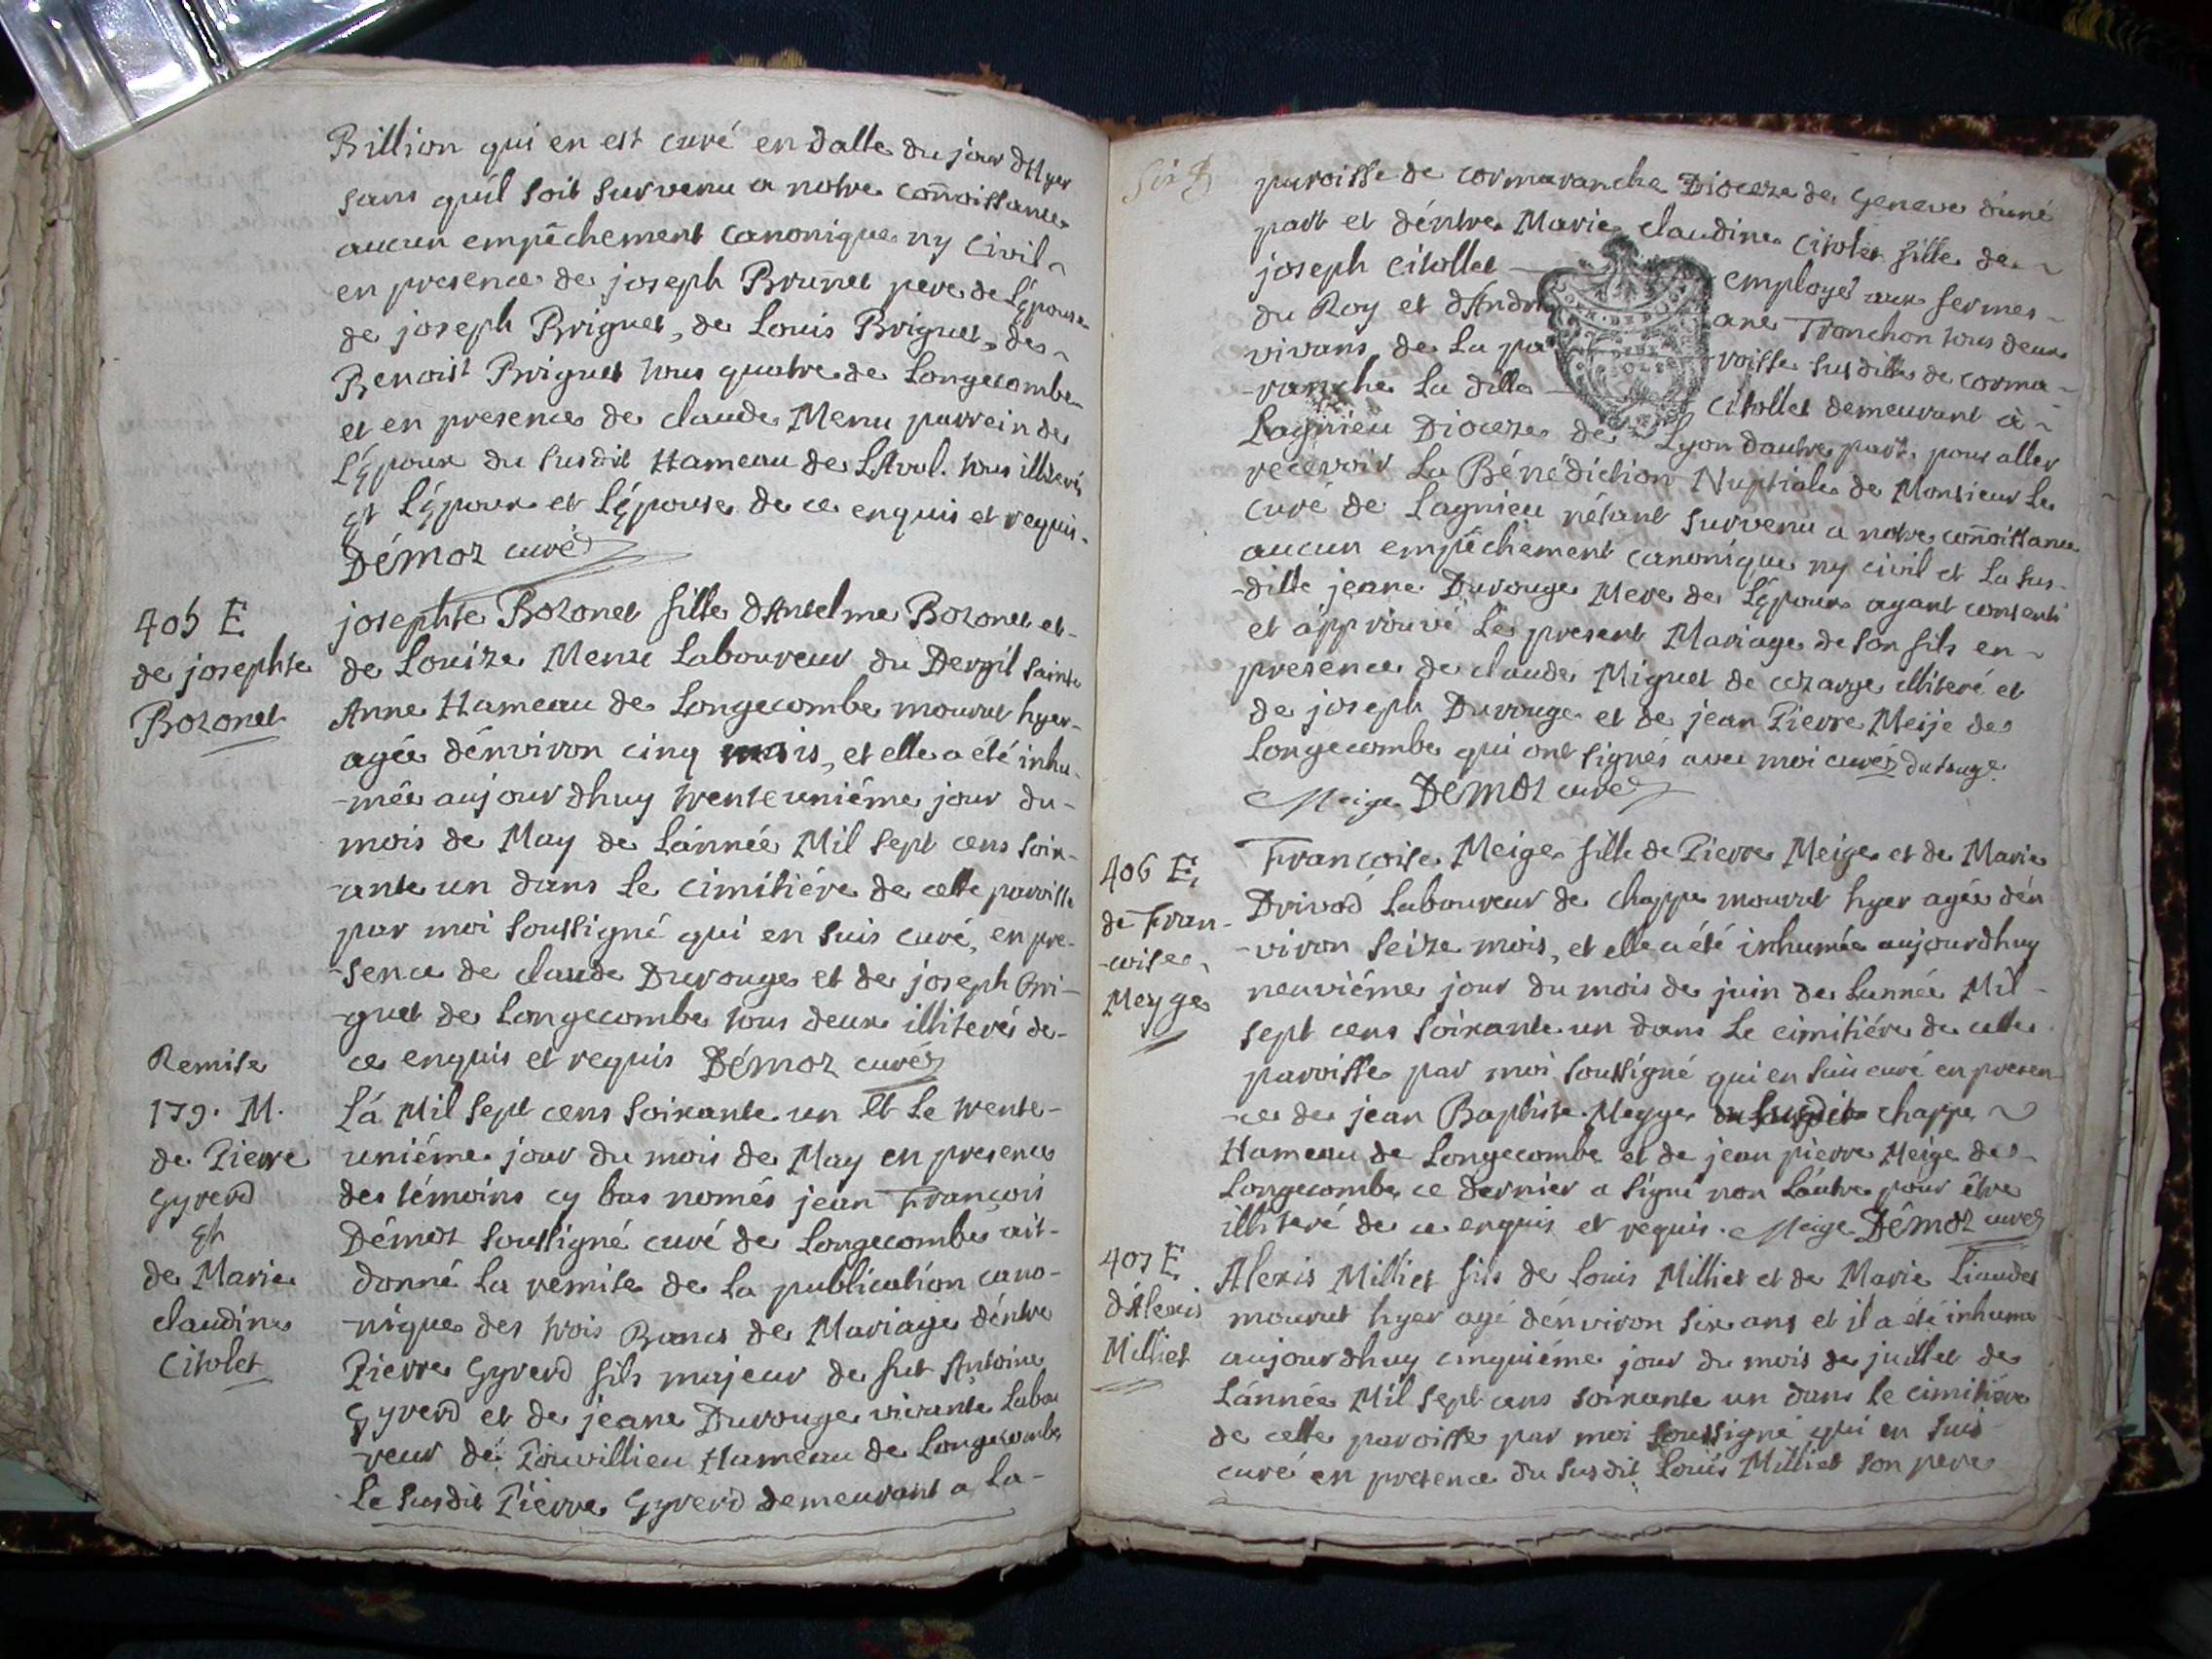 Billion qui en est curé en datte du jour d'Hyer
sans qu'il soit survenu a notre coñoissance
aucun empêchement canonique ny civil
en presence de joseph Brunet pere de L'Epouse
de joseph Briguet, de Louis Briguet, de
Benoist Briguet tous quatre de Longecombe
et en presence de claude Menu parrein de
L'Epoux du susdit Hameau de LAval. tous illiterés
Et L'Epoux et L'Epouse de ce enquis et requis.
Démoz curé
405 E
de josephte
Bozonet
josephte Bozonet fille d'Antelme Bozonet et
de Louize Menu Laboureur du Dergil Sainte
Anne Hameau de Longecombe mourut hyer
agée d'énviron cinq mois, et elle a été inhu-
-mée aujourdhuy trente uniéme jour du
mois de May de L'année Mil sept cens soix-
-ante un dans Le cimitiére de cette paroisse
par moi soussigné qui en suis curé, en pre-
-sence de claude Durouge et de joseph Bri-
-guet de Longecombe tous deux illiterés de
ce enquis et requis Démoz curé
Remise
179. M.
de Pierre
Gyrerd
Et
de Marie
claudine
Citolet
L'á Mil sept cens soixante un Et Le trente-
uniéme jour du mois de May en presence
des témoins cy bas només jean François
Démoz soussigné curé de Longecombe ait
donné La remise de La publication cano-
-nique des trois Bancs de Mariage d'éntre
Pierre Gyrerd fils majeur de fut Antoine
Gyrerd et de jeane Durouge vivante Labou
-reur de Pouvillieu Hameau de Longecombe
Le susdit Pierre Gyrerd demeurant a La-
paroisse de cormaranche Dioceze de Geneve d'uné
part et d'éntre Marie claudine Citolet fille de
joseph Citollet employé aux fermes
du Roy et d'Andr ane Tronchon tous deux
vivans de La pa roisse susditte de corma-
-ranche La ditte Citollet demeurant à
Lagnieu Dioceze de Lyon d'autre part. pour aller
recevoir La Bénédiction Nuptiale de Monsieur Le
curé de Lagnieu n'étant survenu a notre coñoissance
aucun empêchement canonique ny civil et La sus-
-ditte jeane Durouge Mere de L'Epoux ayant consenti
et approuvé Le present Mariage de son fils en
presence de claude Miguet de cezarge illiteré et
de joseph Durouge et de jean Pierre Meije de
Longecombe qui ont signés avec moi curé durouge
Meige Démoz curé
406 E,
de Fran-
-coise
Meyge
Francoise Meige fille de Pierre Meige et de Marie
Drivod Laboureur de chappe mourut hyer agée d'én
-viron seize mois, et elle a été inhumée aujourdhuy
neuviéme jour du mois de juin de L'année Mil
sept cens soixante un dans Le cimitiére de cette
paroisse par moi soussigné qui en suis curé en presen-
-ce de jean Baptiste Meyge du susdit chappe
Hameau de Longecombe et de jean pierre Meige de
Longecombe ce dernier a signé non L'áutre pour être
illiteré de ce enquis et requis. Meige Démoz curé
407 E
d'Alexis
Milliet
Alexis Milliet fils de Louis Milliet et de Marie Liaudet
mourut hyer agé d'énviron six ans et il a été inhumé
aujourdhuy cinquiéme jour du mois de juillet de
L'année Mil sept cens soixante un dans le cimitiére
de cette paroisse par moi soussigné qui en suis
curé en presence du susdit Louis Milliet son pere